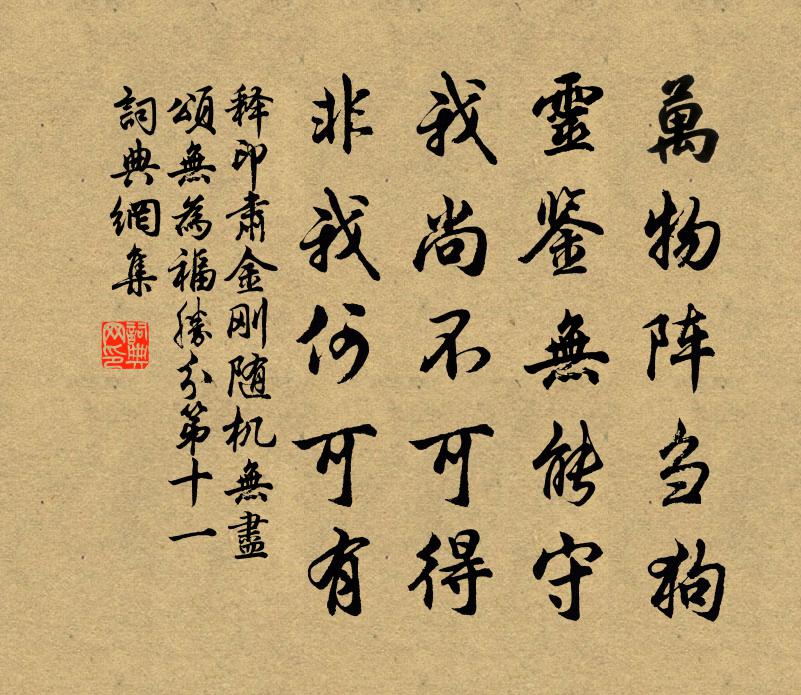 萬物阵刍狗
靈鉴無能守
我尚不可得
非我何可有
释印肃金刚随机無盡
頌無為福勝分第十一
詞典網集
詞典
网印